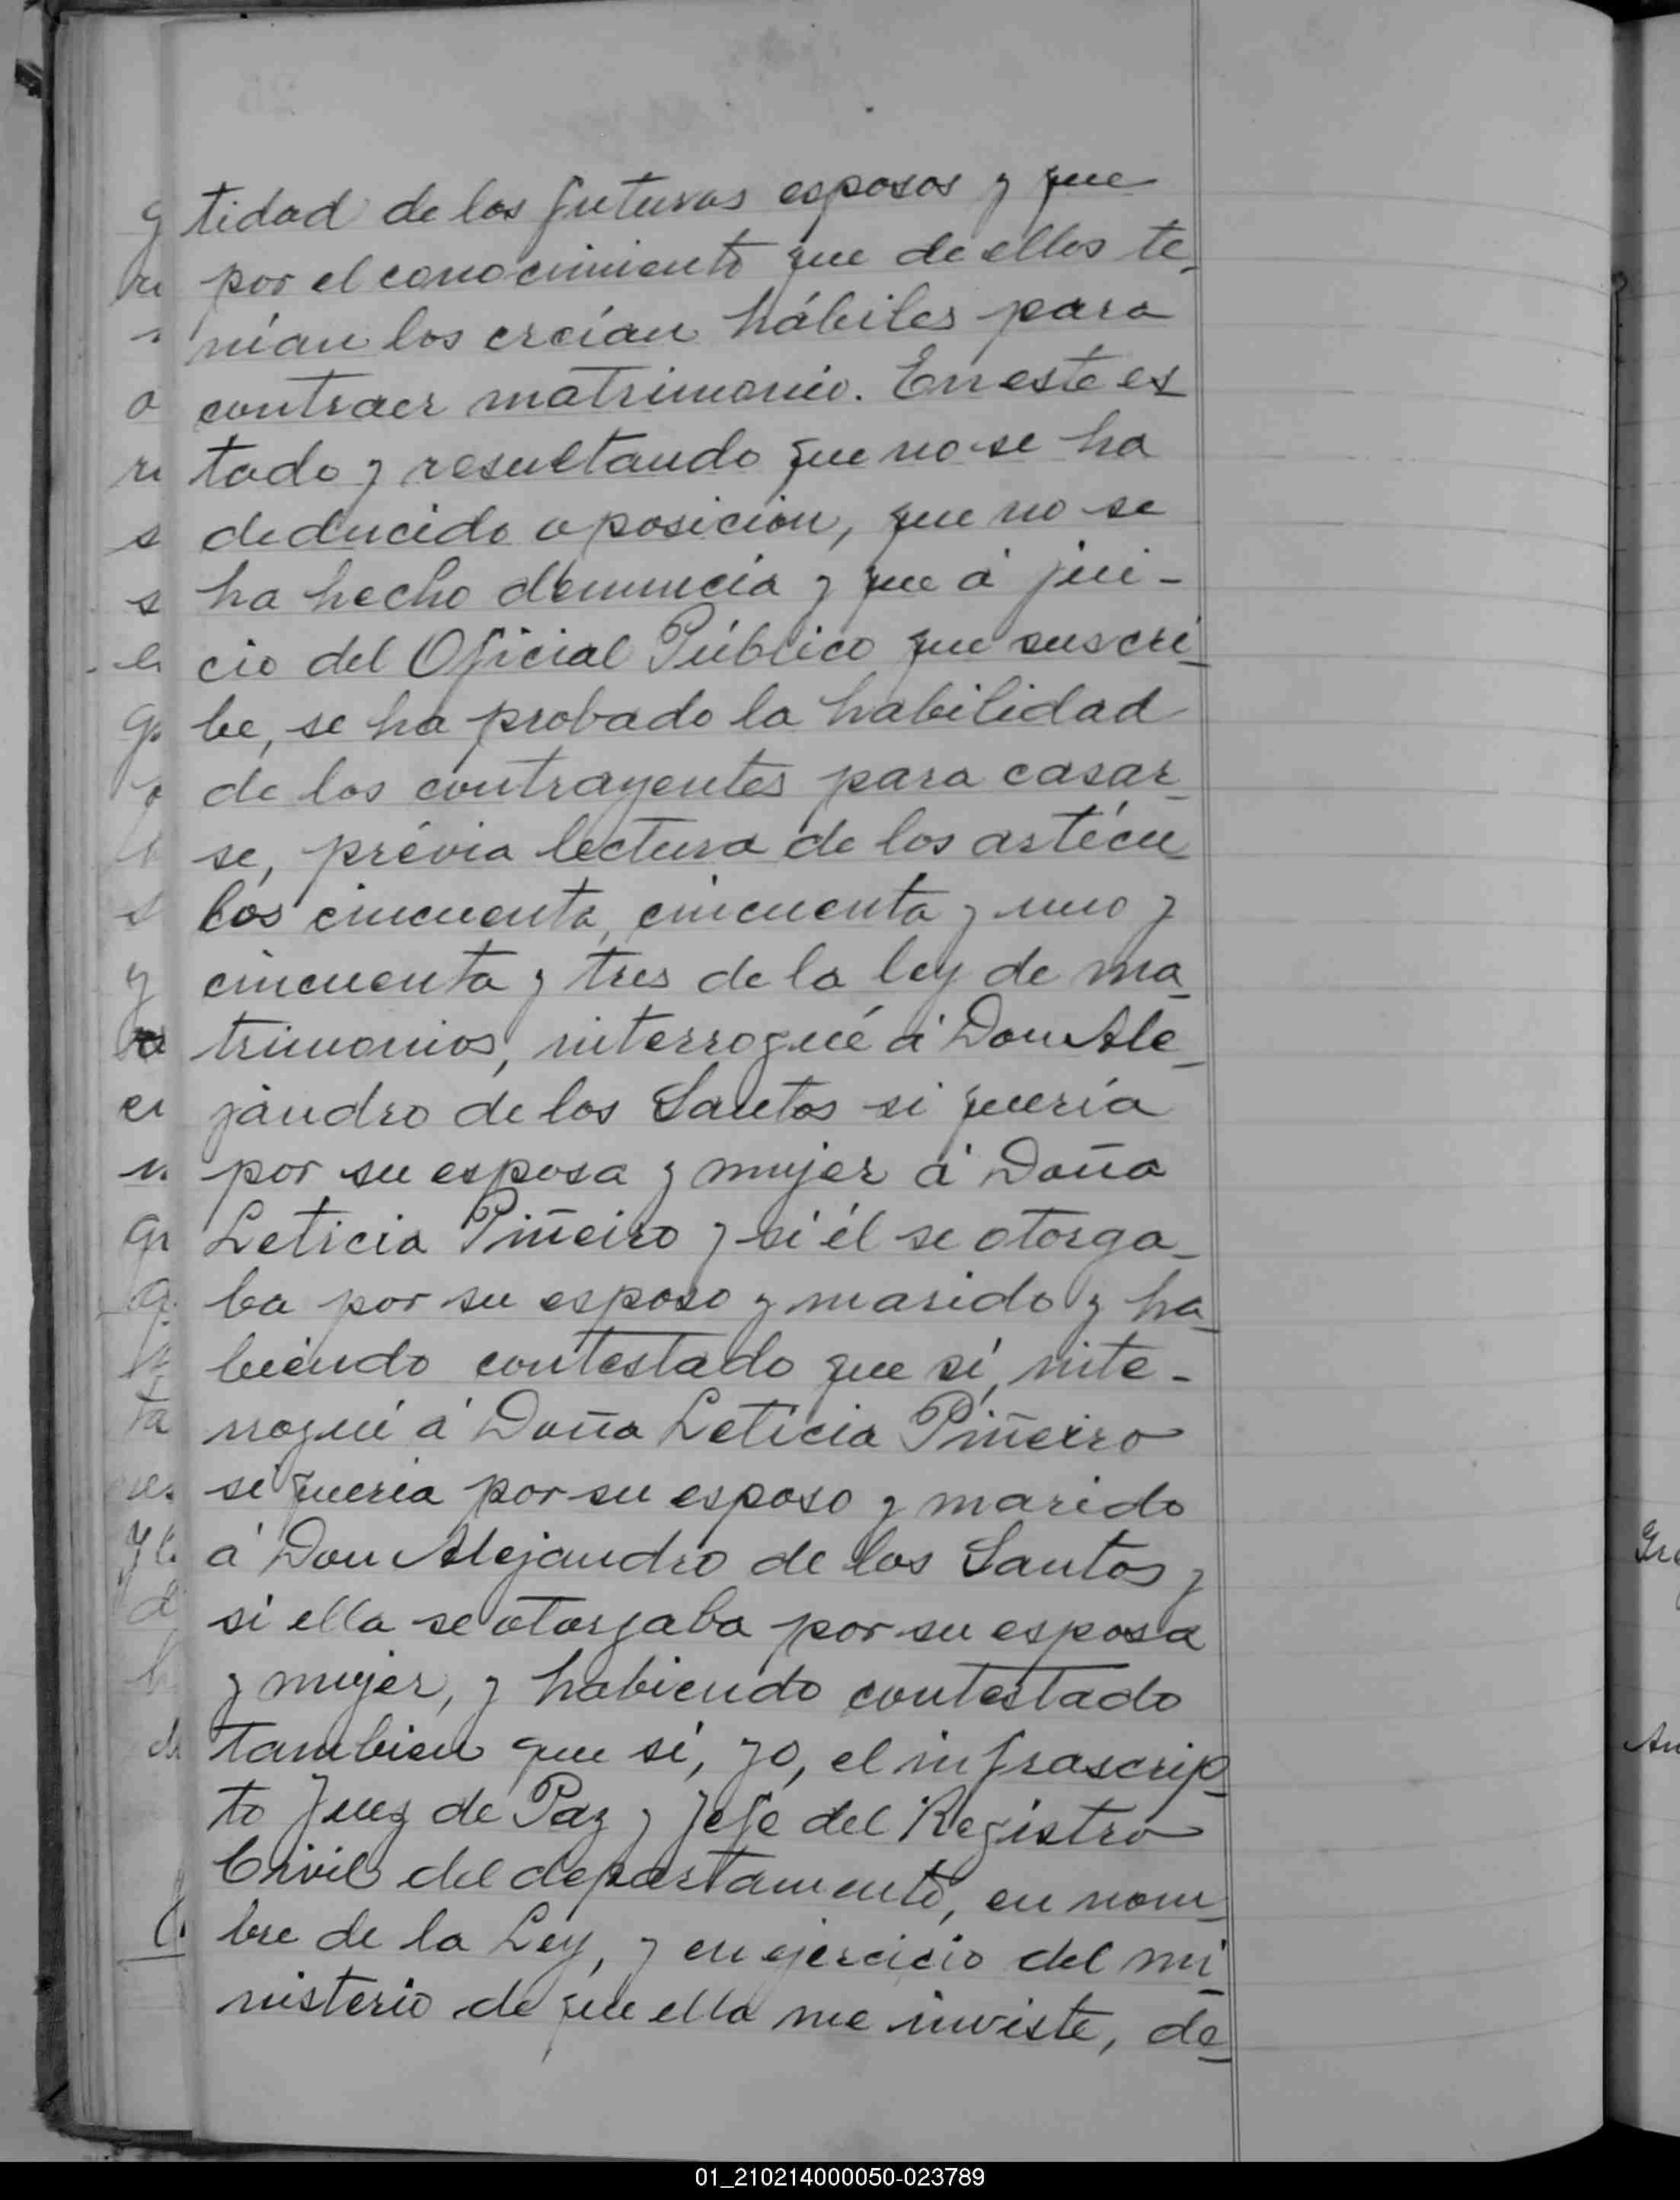 tidad de los futuros esposos y que
por el conocimiento que de ellos te-
nían los creían hábiles para
contraer matrimonio. En este es
tado y resultando que no se ha
deducido oposición, que no se
ha hecho denuncia y que á jui-
cio del Oficial Público que suscri-
be, se ha probado la habilidad
de los contrayentes para casar-
se, prévia lectura de los artícu-
los cincuenta, cincuenta y uno y
cincuenta y tres de la ley de ma-
trimonios, interrogué á Don Ale-
jandro de los Santos si quería
por su esposa y mujer á Doña
Leticia Piñeiro y si él se otorga-
ba por su esposo y marido y ha-
biendo contestado que sí, inte-
rrogué á Doña Leticia Piñeiro
si quería por su esposo y marido
á Don Alejandro de los Santos y
si ella se otorgaba por su esposa
y mujer, y habiendo contestado
tambien que sí, yo, el infrascrip-
to Juez de Paz y Jefe del Registro
Civil del departamento, en nom-
bre de la Ley, y en ejercicio del mi-
nisterio de que ella me inviste, de-
01_210214000050-023789